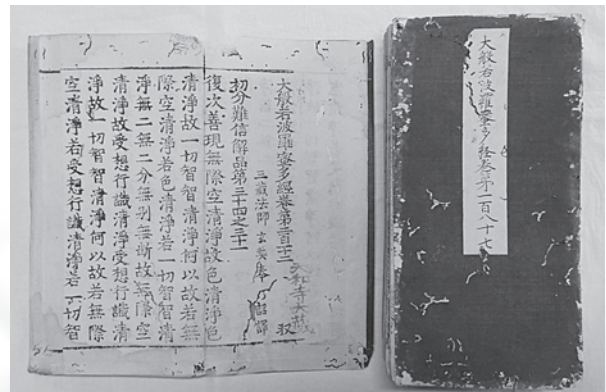 大般若波羅蜜多経巻第一百八十七
大般若波羅蜜多經卷第二百十二
初分難信解品第三十四之三十一
三藏法師玄奘奉 詔譯
復次善現無際空清淨故色清淨色
清淨故一切智智清淨何以故若無
際空清淨若色清淨若一切智智清
淨無二無二分無別無斷故無際空
清淨故受想行識清淨受想行識清
淨故一切智智清淨何以故若無際
空清淨若受想行識清淨若一切智